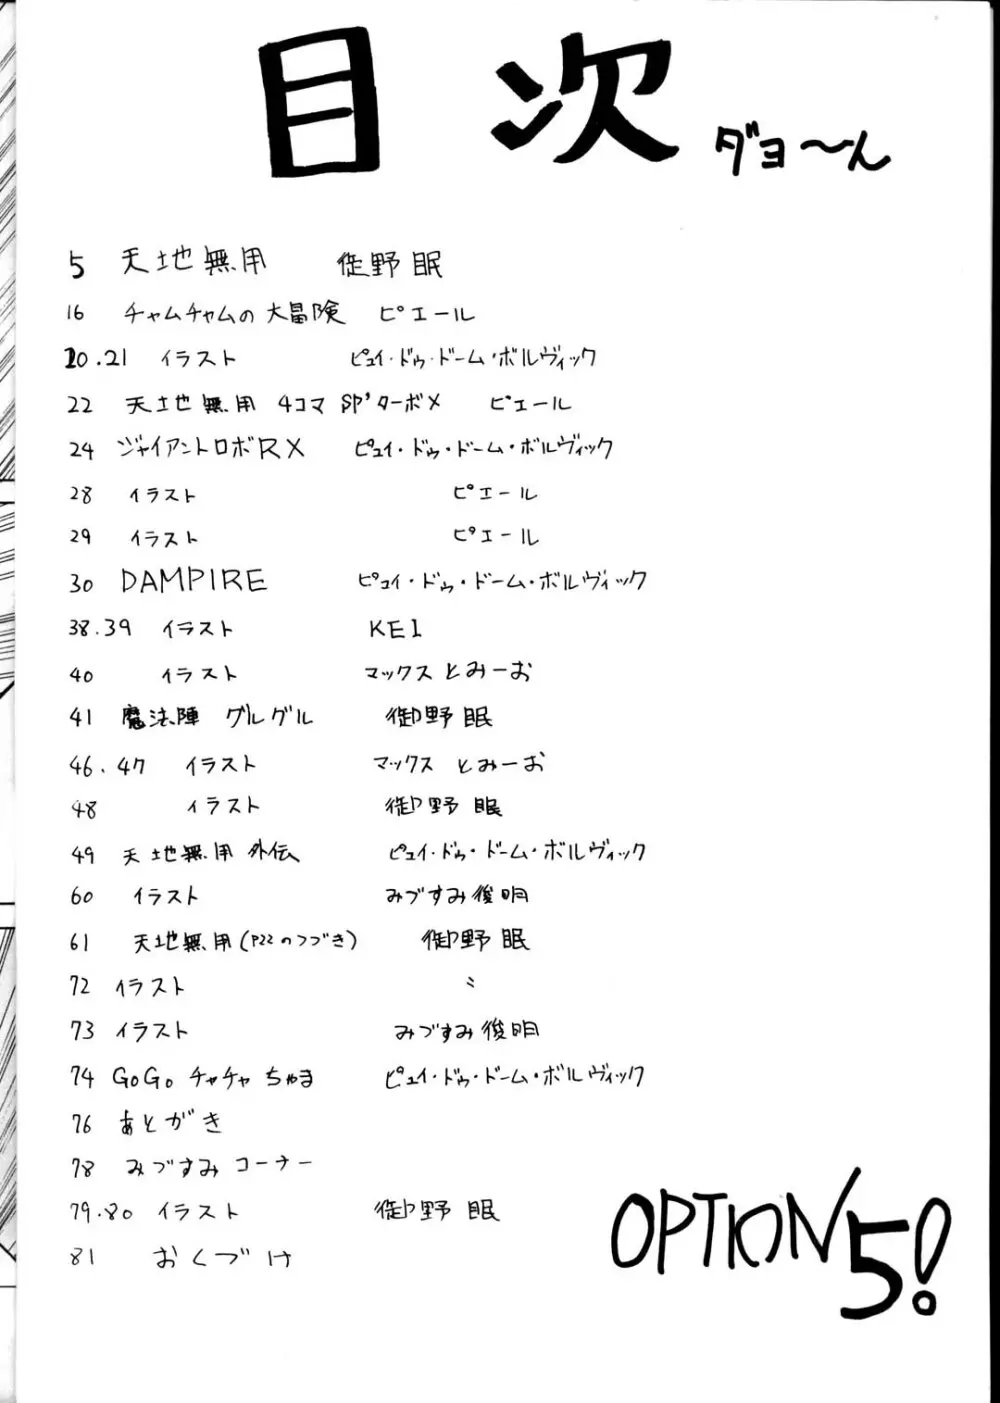 目次 ダヨ〜ん
5 天地無用 御野眠
16 チャムチャムの大冒険 ピエール
20.21 イラスト ピュイ・ドゥ・ドーム・ボルヴィック
22 天地無用 4コマ SP'ターボX ピエール
24 ジャイアントロボRX ピュイ・ドゥ・ドーム・ボルヴィック
28 イラスト ピエール
29 イラスト ピエール
30 DAMPIRE ピュイ・ドゥ・ドーム・ボルヴィック
38.39 イラスト KEI
40 イラスト マックスとみーお
41 魔法陣 グルグル 御野眠
46.47 イラスト マックス とみーお
48 イラスト 御野眠
49 天地無用 外伝 ピュイ・ドゥ・ドーム・ボルヴィック
60 イラスト みづすみ俊明
61 天地無用(P22のつづき) 御野眠
72 イラスト 〃
73 イラスト みづすみ俊明
74 GoGo チャチャ ちゃま ピュイ・ドゥ・ドーム・ボルヴィック
76 あとがき
78 みづすみ コーナー
79.80 イラスト 御野眠
81 おくづけ
OPTION 5!